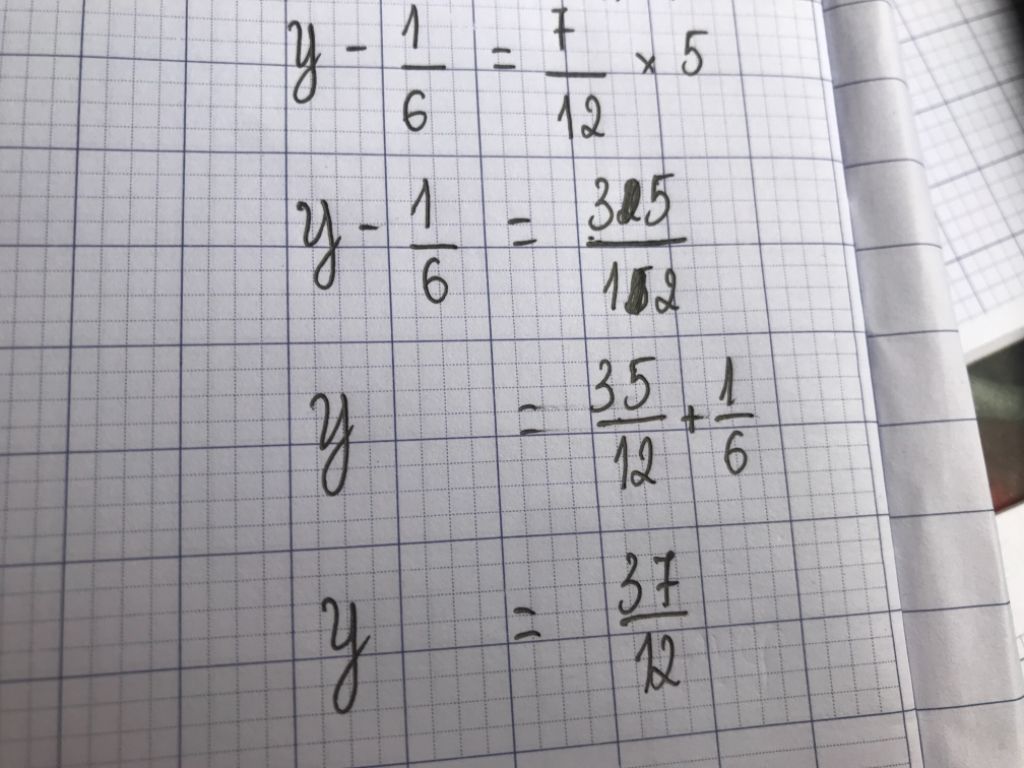 y - 1/6 = 7/12 × 5
y - 1/6 = 35/12
y = 35/12 + 1/6
y = 37/12